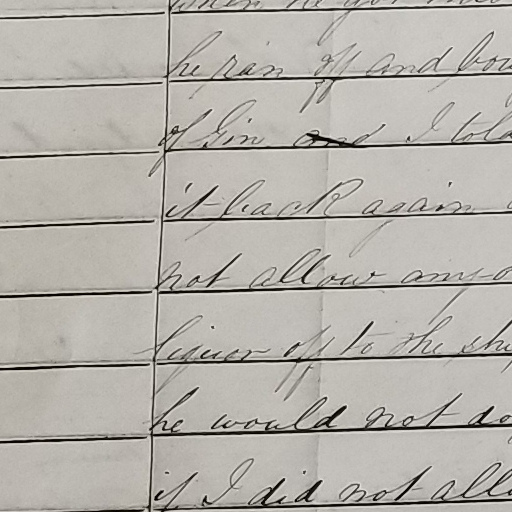 when he got
he ran off and bou
of Gin and I told
it back again
not allow any
liquor off to the shi
he would not do
if I did not allo